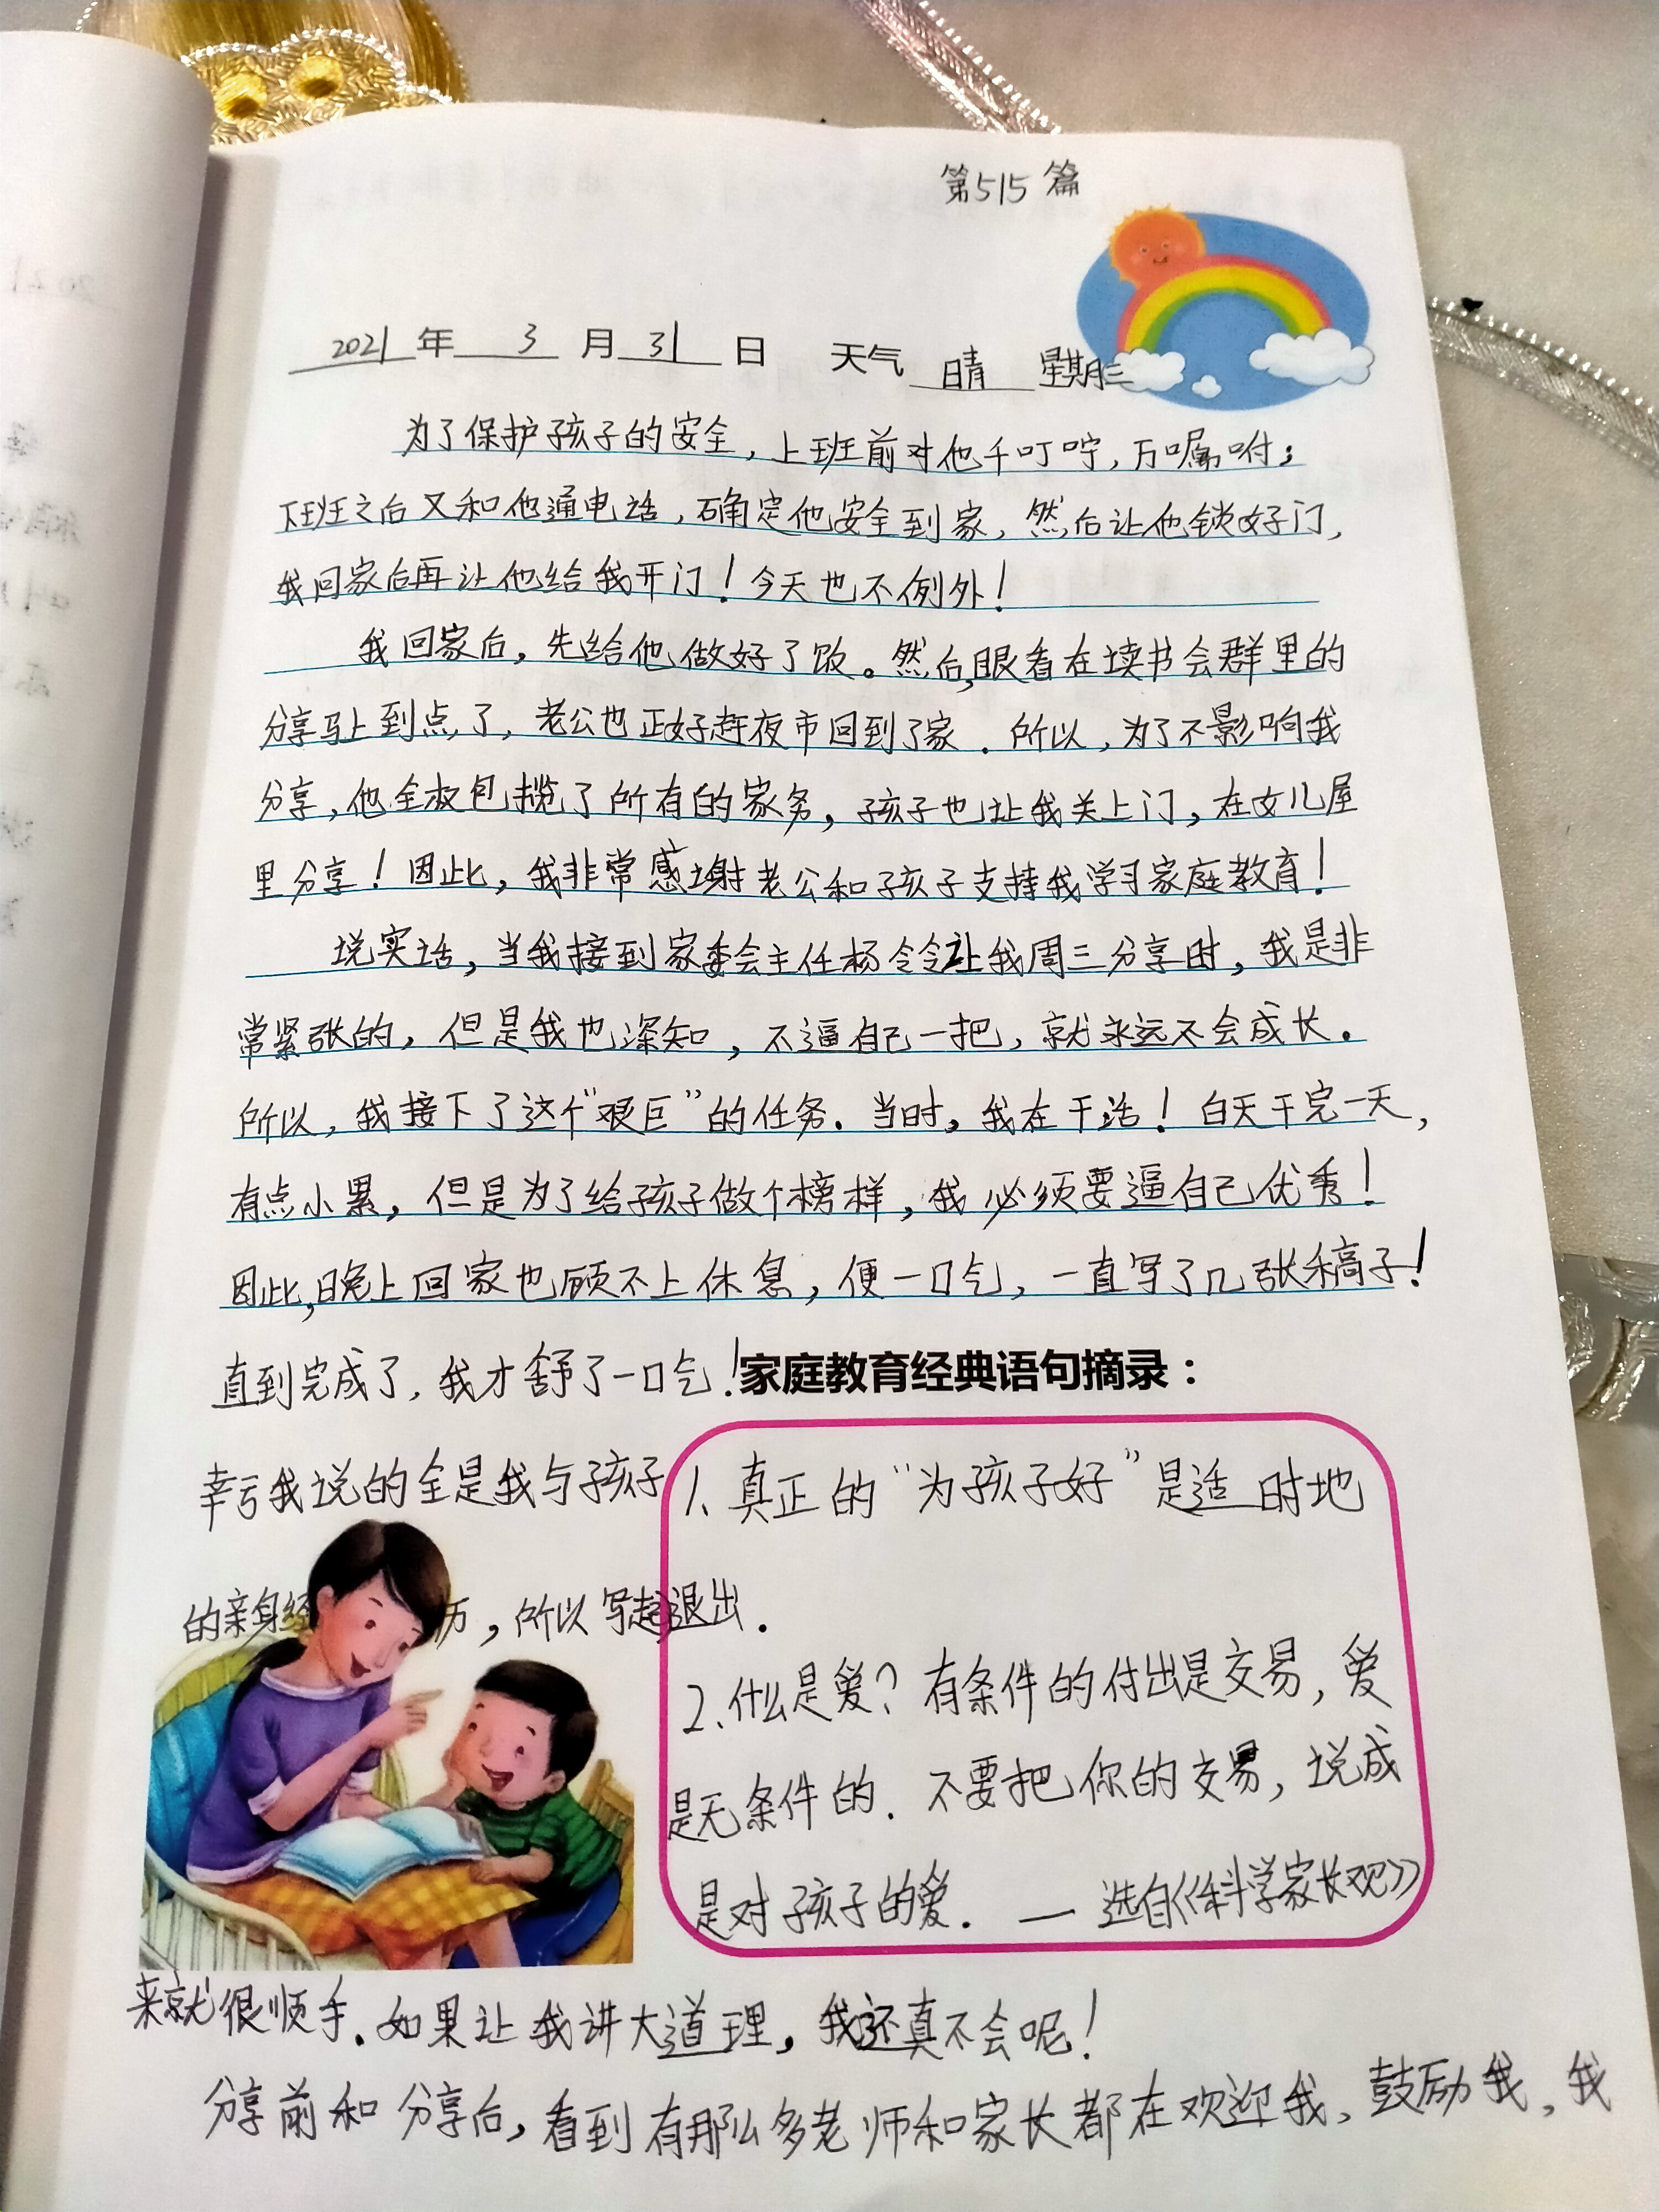 第515篇
2021年 3 月 31 日 天气 晴 星期三
为了保护孩子的安全，上班前对他千叮咛，万嘱咐；
下班之后又和他通电话，确定他安全到家，然后让他锁好门，
我回家后再让他给我开门！今天也不例外！
我回家后，先给他做好了饭。然后，眼看在读书会群里的
分享马上到点了，老公也正好赶夜市回到了家．所以，为了不影响我
分享，他全权包揽了所有的家务，孩子也让我关上门，在女儿屋
里分享！因此，我非常感谢老公和孩子支持我学习家庭教育！
说实话，当我接到家委会主任杨令令让我周三分享时，我是非
常紧张的，但是我也深知，不逼自己一把，就永远不会成长．
所以，我接下了这个“艰巨”的任务．当时，我在干活！白天干完一天，
有点小累，但是为了给孩子做个榜样，我必须要逼自己优秀！
因此，晚上回家也顾不上休息，便一口气，一直写了几张稿子！
直到完成了，我才舒了一口气！
幸亏我说的全是我与孩子
的亲身经历，所以写起
家庭教育经典语句摘录：
1、真正的“为孩子好”是适时地
退出．
2、什么是爱？有条件的付出是交易，爱
是无条件的．不要把你的交易，说成
是对孩子的爱．— 选自《科学家长观》
来就很顺手．如果让我讲大道理，我还真不会呢！
分享前和分享后，看到有那么多老师和家长都在欢迎我、鼓励我，我